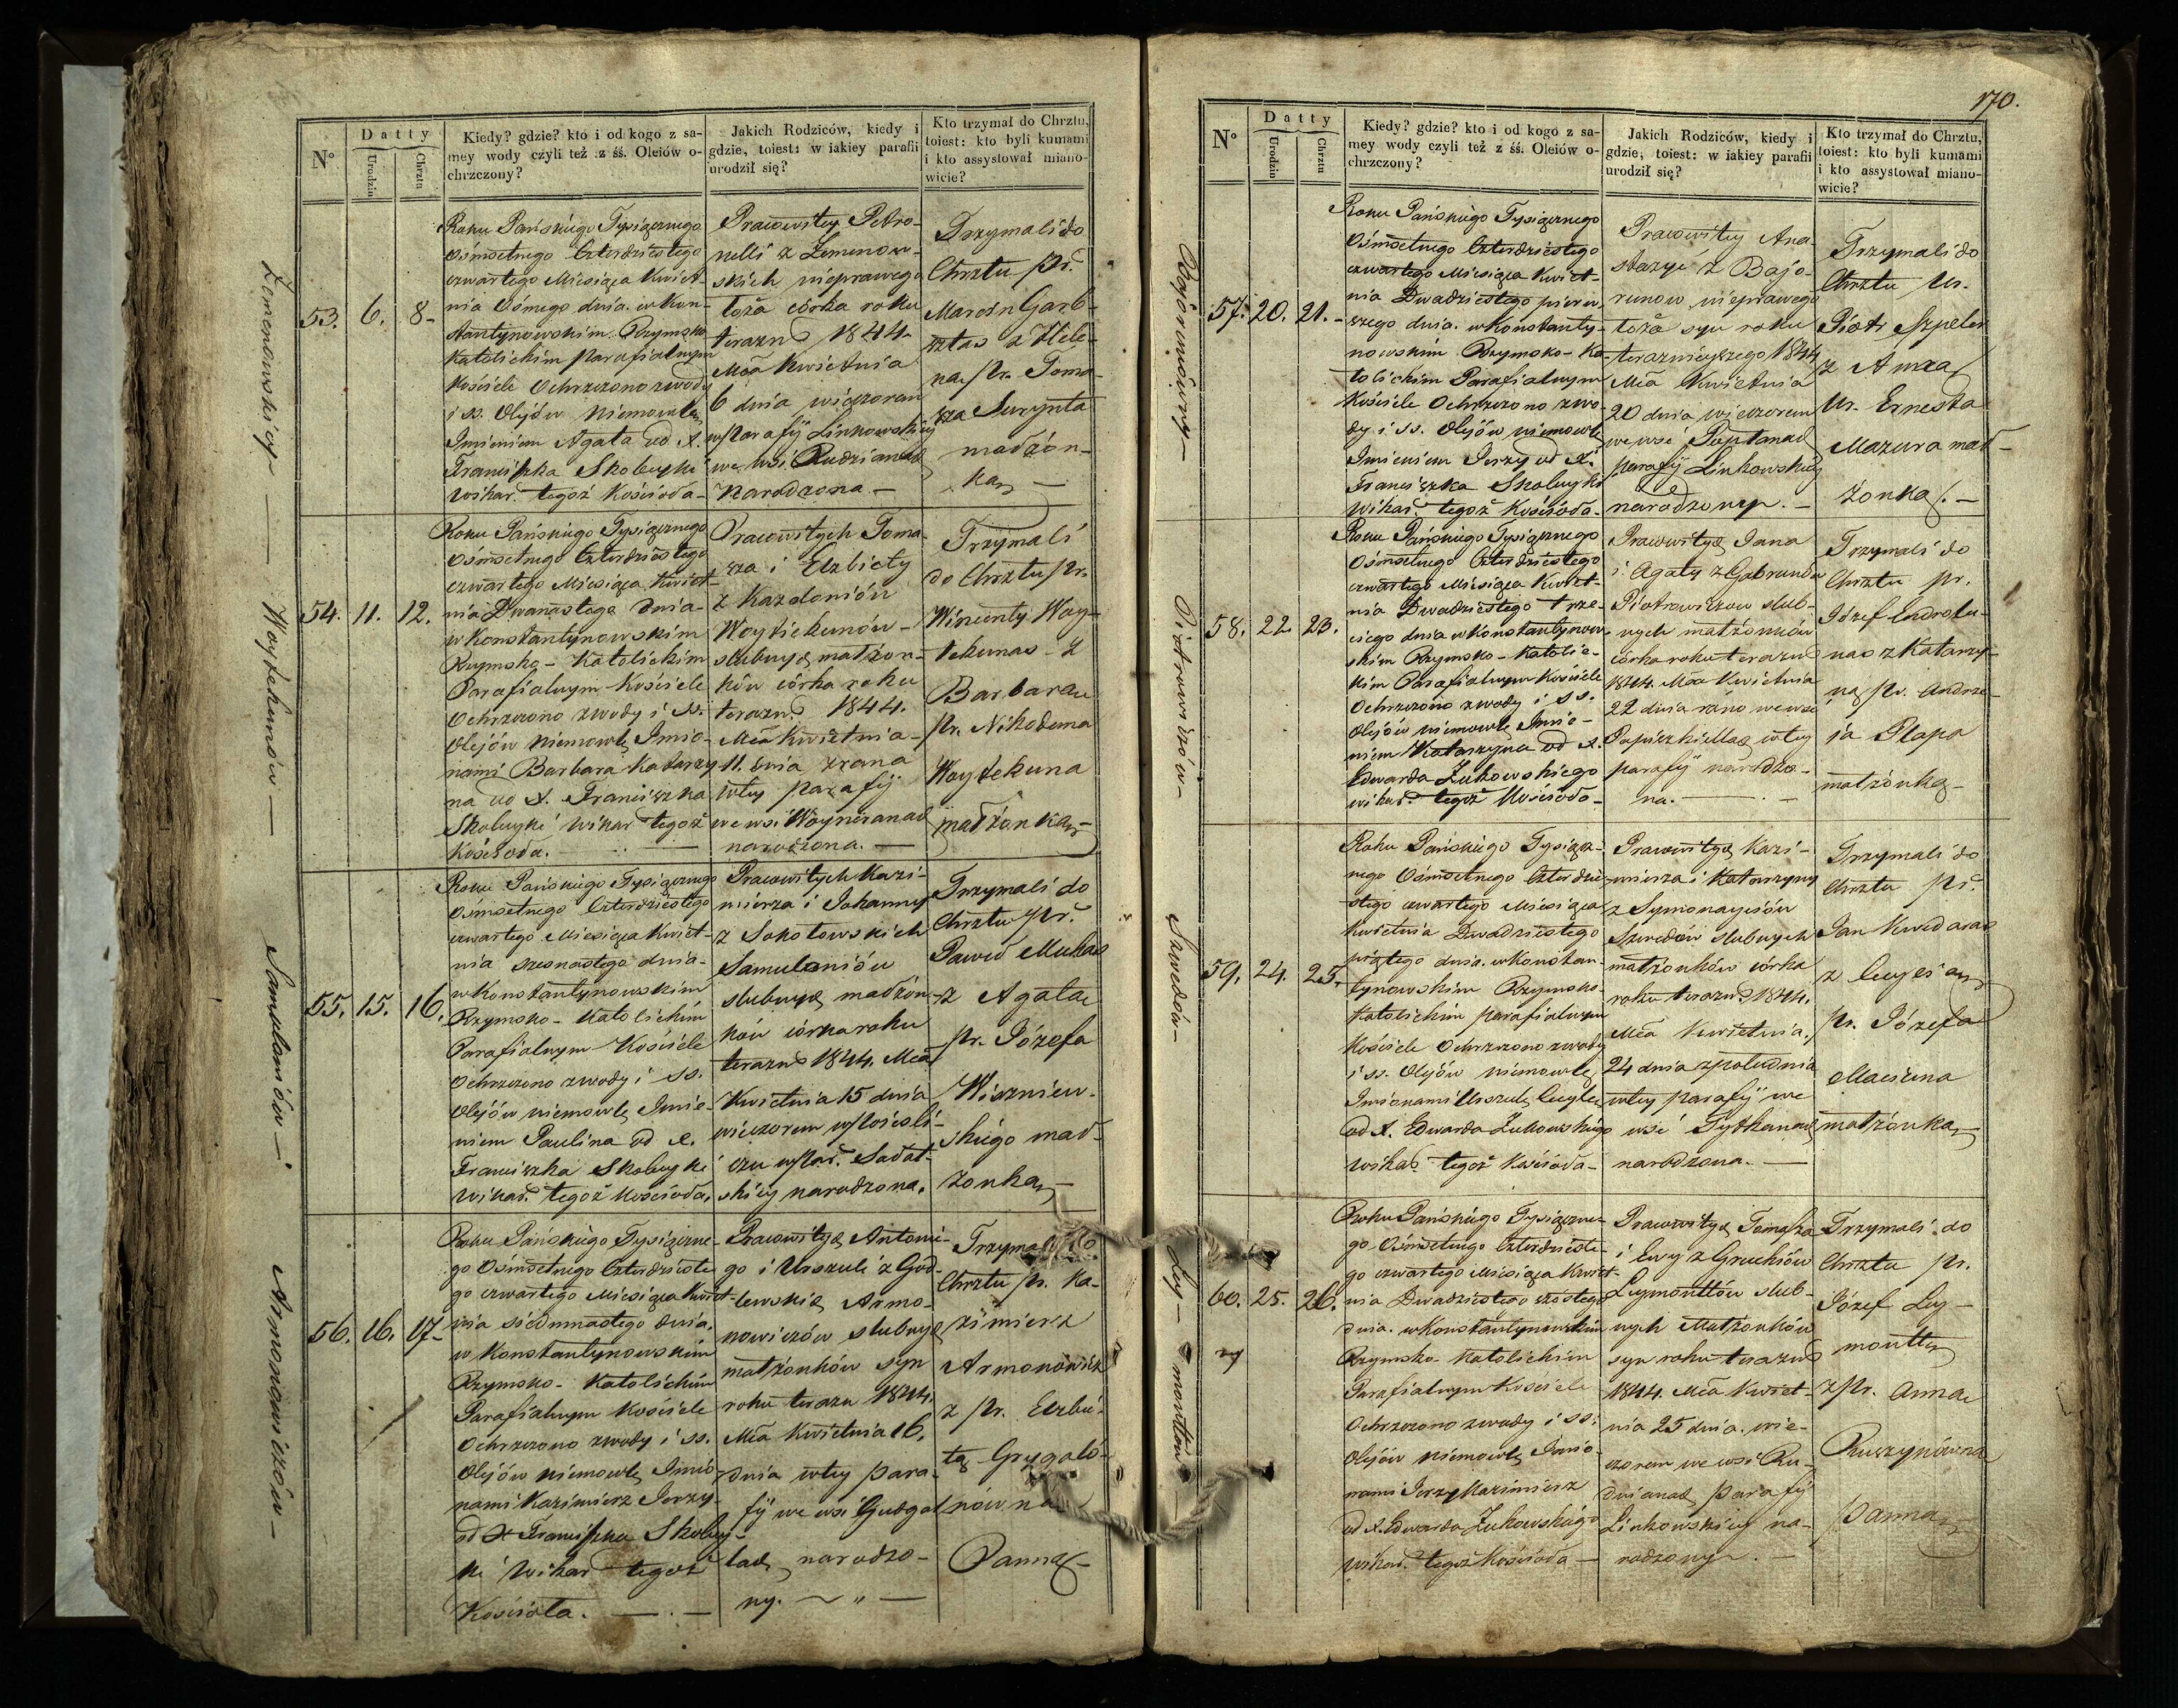 N°
Datty
Urodzin
Chrztu
Kiedy? gdzie? kto i od kogo z sa-
mey wody czyli też z śś. Oleiów o-
chrzczony?
Jakich Rodziców, kiedy i
gdzie, toiest: w iakiey parafii
urodził się?
Kto trzymał do Chrztu,
toiest: kto byli kumami
i kto assystował miano-
wicie?
53.
6.
8-
Roku Pańskiego Tysiącznego
Ośmsetnego Czterdziestego
czwartego Miesiąca Kwiet-
nia Ósmego dnia. w Kon-
stantynowskim Rzymsko
Katolickim parafialnym
Kościele Ochrzczono z wody
i ss. Olejów Niemowlę
Imieniem Agata od X.
Franciszka Skobeyki
Wikar. tegoż Kościoła-
Prawowitey Petro-
nelli z Zemenow-
skich nieprawego
łoża córka roku
terazn. 1844.
Mca Kwietnia
6 dnia wieczorem
w Parafij Linkowskiey
we wsi Rudzianach
Narodzona.-
Trzymali do
Chrztu Pr.
Marcin Garb-
sztas z Hele-
ną Pr. Toma-
sza Surynta
małżon-
ką-
54.
11.
12.
Roku Pańskiego Tysiącznego
Ośmsetnego Czterdziestego
czwartego Miesiąca Kwiet-
nia Dwunastego dnia-
w Konstantynowskim
Rzymsko-Katolickim
Parafialnym Kościele
Ochrzczono z wody i ss.
Olejów Niemowlę Imio-
nami Barbara Katarzy
na od X. Franciszka
Skobeyki Wikar tegoż
Kościoła.
Prawowitych Toma-
sza i Elzbiety
z Kazdoniów
Woytiekunów-
slubnych małżon-
ków córka roku
terazn. 1844.
Mca Kwietnia-
11. dnia z rana
w tey parafij
we wsi Woyniunach
narodzona.-
Trzymali
do Chrztu Pr.
Wincenty Woy-
tekunas z
Barbarą
Pr. Nikodema
Woytekuna
małżonką-
55.
15.
16.
Roku Pańskiego Tysiącznego
Ośmsetnego Czterdziestego
czwartego Miesiąca Kwiet-
nia szesnastego dnia-
w Konstantynowskim
Rzymsko-Katolickim
Parafialnym Kościele
Ochrzczono z wody i ss.
Olejów niemowlę Imie-
niem Paulina od X.
Franciszka Skobeyki
Wikar. tegoż Kościoła.
Prawowitych Kazi-
mierza i Johanny
z Sokołowskich
Samulaniów
slubnych małżon-
ków córka roku
terazn. 1844. Mca
Kwietnia 15 dnia
wieczorem w Pościeli-
szu w Par. Sałat-
skiey narodzona.
Trzymali do
Chrztu Pr.
Paweł Mukas
z Agatą
Pr. Józefa
Wiszniew-
skiego mał-
żonką-
56.
16.
17-
Roku Pańskiego Tysiączne-
go Ośmsetnego Czterdzieste
go czwartego Miesiąca Kwiet-
nia siedmnastego dnia.
w Konstantynowskim
Rzymsko-Katolickim
Parafialnym Kościele
Ochrzczono z wody i ss.
Olejów Niemowlę Imio-
nami Kazimierz Jerzy-
od X Franciszka Skobey-
ki Wikar tegoż
Kościoła.
Prawowitych Antonie-
go i Urszuli z God-
lewskich Armo-
nowiczów slubnych
małżonków syn
roku terazn 1844.
Mca Kwietnia 16.
dnia w tey para-
fij we wsi Gudgal
lach narodzo-
ny.
Trzymali do
Chrztu Pr. Ka-
zimierz
Armonowicz
z Pr. Elzbie-
tą Grygalu-
nówną
Panną-
Zemenowskiey-
Woytekunów-
Samulaniów-
Armonowiczów-
170.
N°
Datty
Urodzin
Chrztu
Kiedy? gdzie? kto i od kogo z sa-
mey wody czyli też z śś. Oleiów o-
chrzczony?
Jakich Rodziców, kiedy i
gdzie, toiest: w iakiey parafii
urodził się?
Kto trzymał do Chrztu,
toiest: kto byli kumami
i kto assystował miano-
wicie?
57.
20.
21.-
Roku Pańskiego Tysiącznego
Ośmsetnego Czterdziestego
czwartego Miesiąca Kwiet-
nia Dwadziestego pierw-
szego dnia. w Konstanty-
nowskim Rzymsko-Ka-
tolickim Parafialnym
Kościele Ochrzczono z wo-
dy i ss. Olejów niemowlę
Imieniem Jerzy od X.
Franciszka Skobeyki
Wikar. tegoż Kościoła.
Prawowitey Ana-
stazyi z Bajo-
runow nieprawego
łoża syn roku
teraznieyszego 1844
Mca Kwietnia
20 dnia wieczorem
we wsi Poptanach
parafij Linkowskiey
narodzony.-
Trzymali do
Chrztu Ur.
Piotr Szpeler
z Anną
Ur. Ernesta
Mazura mał-
żonką.-
58.
22.
23.
Roku Pańskiego Tysiącznego
Ośmsetnego Czterdziestego
czwartego Miesiąca Kwiet-
nia Dwadziestego trze-
ciego dnia w Konstantynow-
skim Rzymsko-Katolic-
kim Parafialnym Kościele
Ochrzczono z wody i ss.
Olejów niemowlę Imie-
niem Katarzyna od X.
Edwarda Żukowskiego
wikar. tegoż Kościoła-
Prawowitych Jana
i Agaty z Gabrunów
Piotrowiczow slub-
nych małżonków
córka roku terazn
1844. Mca Kwietnia
22 dnia rano we wsi
w tey
parafij narodzo-
na.-
Trzymali do
Chrztu Pr.
Józef
z Katarzy-
ną Pr. Andrze-
ja Płapa
małżonką-
59.
24.
25.
Roku Pańskiego Tysiącz-
nego Ośmsetnego Czterdzie-
stego czwartego Miesiąca
Kwietnia Dwadziestego
piątego dnia. w Konstan-
tynowskim Rzymsko-
Katolickim parafialnym
Kościele Ochrzczono z wody
i ss. Olejów niemowlę
Imionami Urszulę
od X. Edwarda Żukowskiego
Wikar. tegoż Kościoła-
Prawowitych Kazi-
mierza i Katarzyny
z Symonaysiów
Szwedów slubnych
małżonków córka
roku terazn. 1844.
Mca Kwietnia.
24 dnia z południa
w tey parafij we
wsi Tytkanach
narodzona.-
Trzymali do
Chrztu Pr.
Jan Kwedaras
z
Pr. Józefa
Maciuna
małżonką-
60.
25.
26.
Roku Pańskiego Tysiączne-
go Ośmsetnego Czterdzieste-
go czwartego Miesiąca Kwiet-
nia Dwadziestego szóstego
dnia. w Konstantynowskim
Rzymsko-Katolickim
Parafialnym Kościele
Ochrzczono z wody i ss.
Olejów niemowlę Imio-
nami Jerzy Kazimierz
od X. Edwarda Żukowskiego
Wikar. tegoż Kościoła-
Prawowitych Tomasza
i Ewy z Gruchiów
Leymonttów slub-
nych Małżonków
syn roku terazn
1844. Mca Kwiet-
nia 25 dnia. wie-
czorem we wsi Ru-
dzianach parafij
Linkowskiey na-
rodzony.-
Trzymali do
Chrztu Pr.
Józef Ley-
montt
z Pr. Anną
Ruszynówną
Panną
Bajorunówny-
Piotrowiczów-
Szwedów-
Ley-monttów-